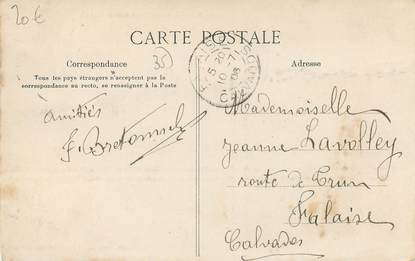 20€
CARTE POSTALE
35
Correspondance
Adresse
Tous les pays étrangers n'acceptent pas la
correspondance au recto, se renseigner à la Poste
CALVADOS
5 20
10 -7
08
amitiés
Mademoiselle
Jeanne Lavolley
route de Trun
Falaise
Calvados